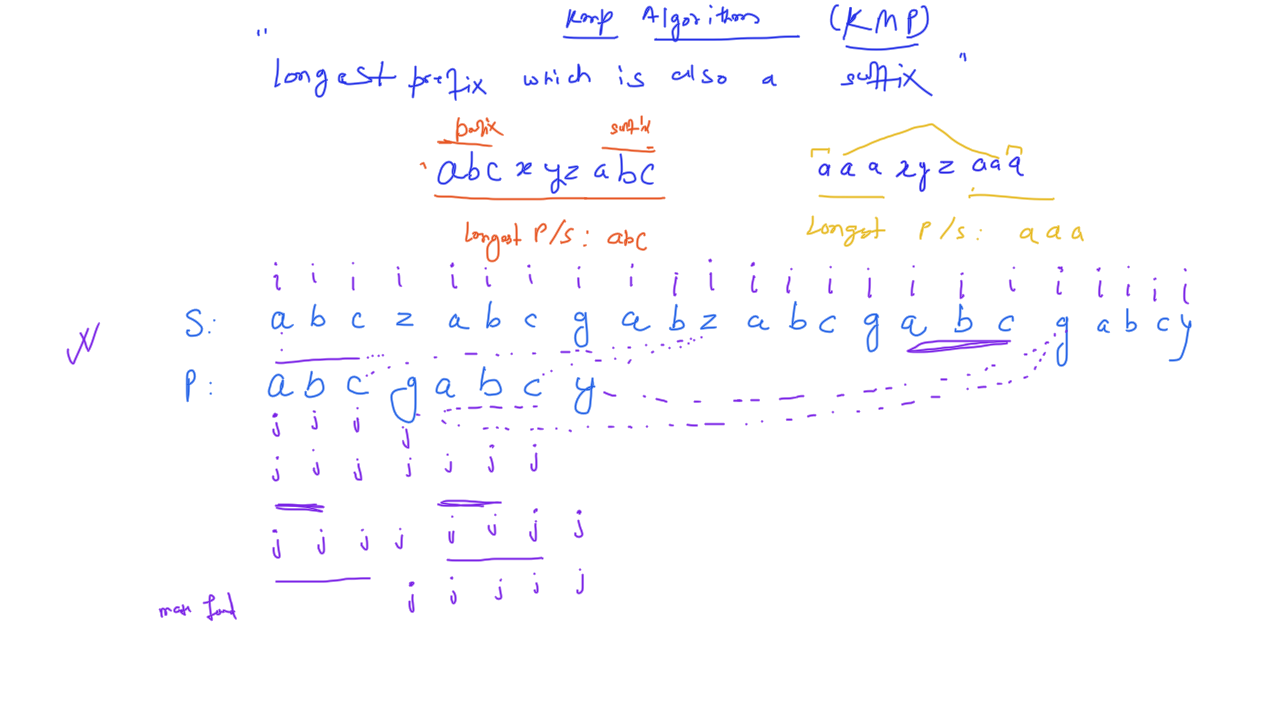 Kmp Algorithm (KMP)
"longest prefix which is also a suffix"
prefix suffix
abc x yz abc a a a x y z a a a
Longest P/S: abc Longest P/S: a a a
i i i i i i i i i i i i i i i i i i i i i i i
S: a b c z a b c g a b z a b c g a b c g a b c y
P: a b c g a b c y
j j j j
j j j j j j j
j j j j j j j j
j j j j j